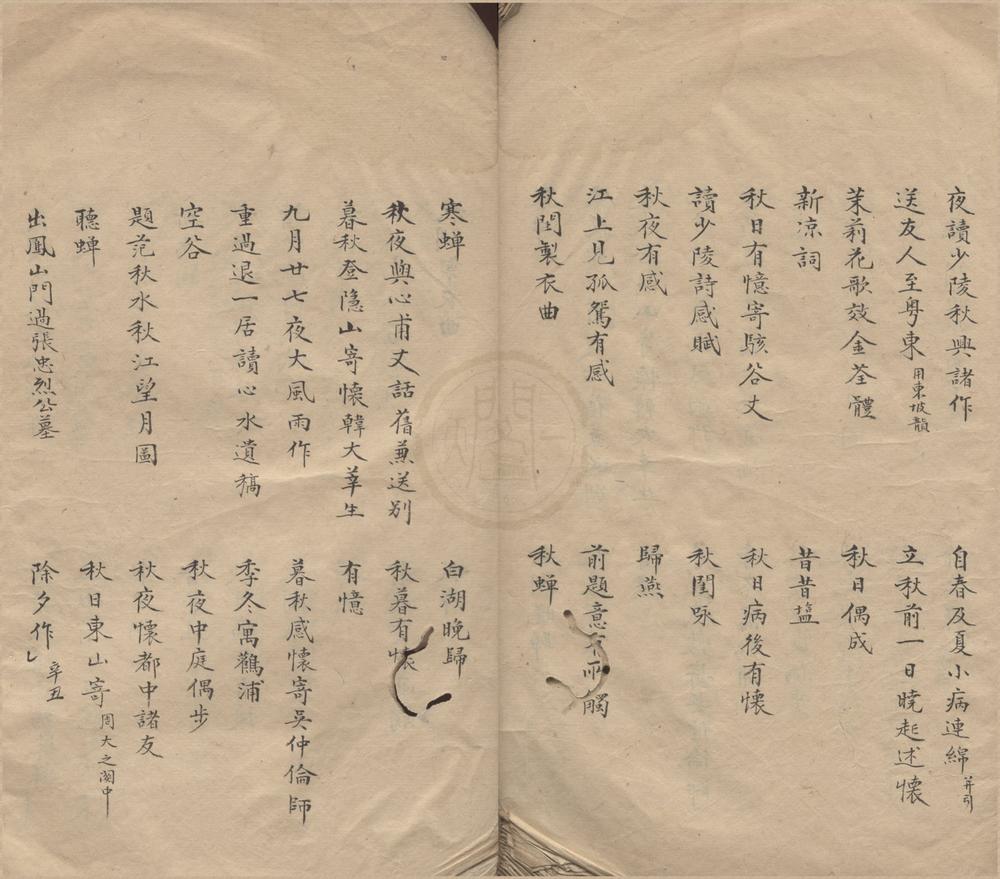 夜讀少陵秋興諸作
自春及夏小病連綿 并引
送友人至粤東 用東坡韻
立秋前一日曉起述懷
茉莉花歌效金荃體
秋日偶成
新凉詞
昔昔塩
秋日有憶寄駭谷丈
秋日病後有懷
讀少陵詩感賦
秋閨咏
秋夜有感
歸燕
江上見孤鴛有感
前題意有所觸
秋閨製衣曲
秋蟬
寒蟬
白湖晚歸
秋夜與心甫丈話舊兼送別
秋暮有懷
暮秋登隱山寄懷韓大莘生
有憶
九月廿七夜大風雨作
暮秋感懷寄吳仲倫師
重過退一居讀心水遺稿
季冬寓鸛浦
空谷
秋夜中庭偶步
題范秋水秋江望月圖
秋夜懷都中諸友
聽蟬
秋日東山寄 周大之閩中
出鳳山門過張忠烈公墓
除夕作 辛丑